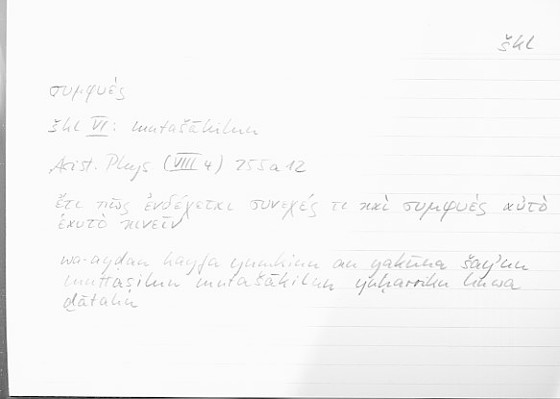 škl
συμφυές
škl VI: mutašākilun
Arist. Phys (VIII 4) 255a12
ἔτι πῶς ἐνδέχεται συνεχές τι καὶ συμφυὲς αὐτὸ
ἑαυτὸ κινεῖν
wa-ayḍan kayfa yumkinu an yakūna šay'un
muttaṣilun mutašākilun yuḥarriku huwa
ḏātahu